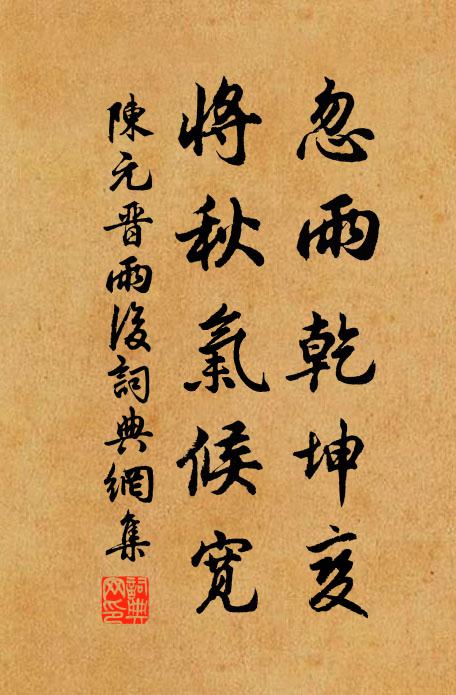 忽雨乾坤变
將秋氣候寬
陳元晋雨後詞典網集
詞典网印